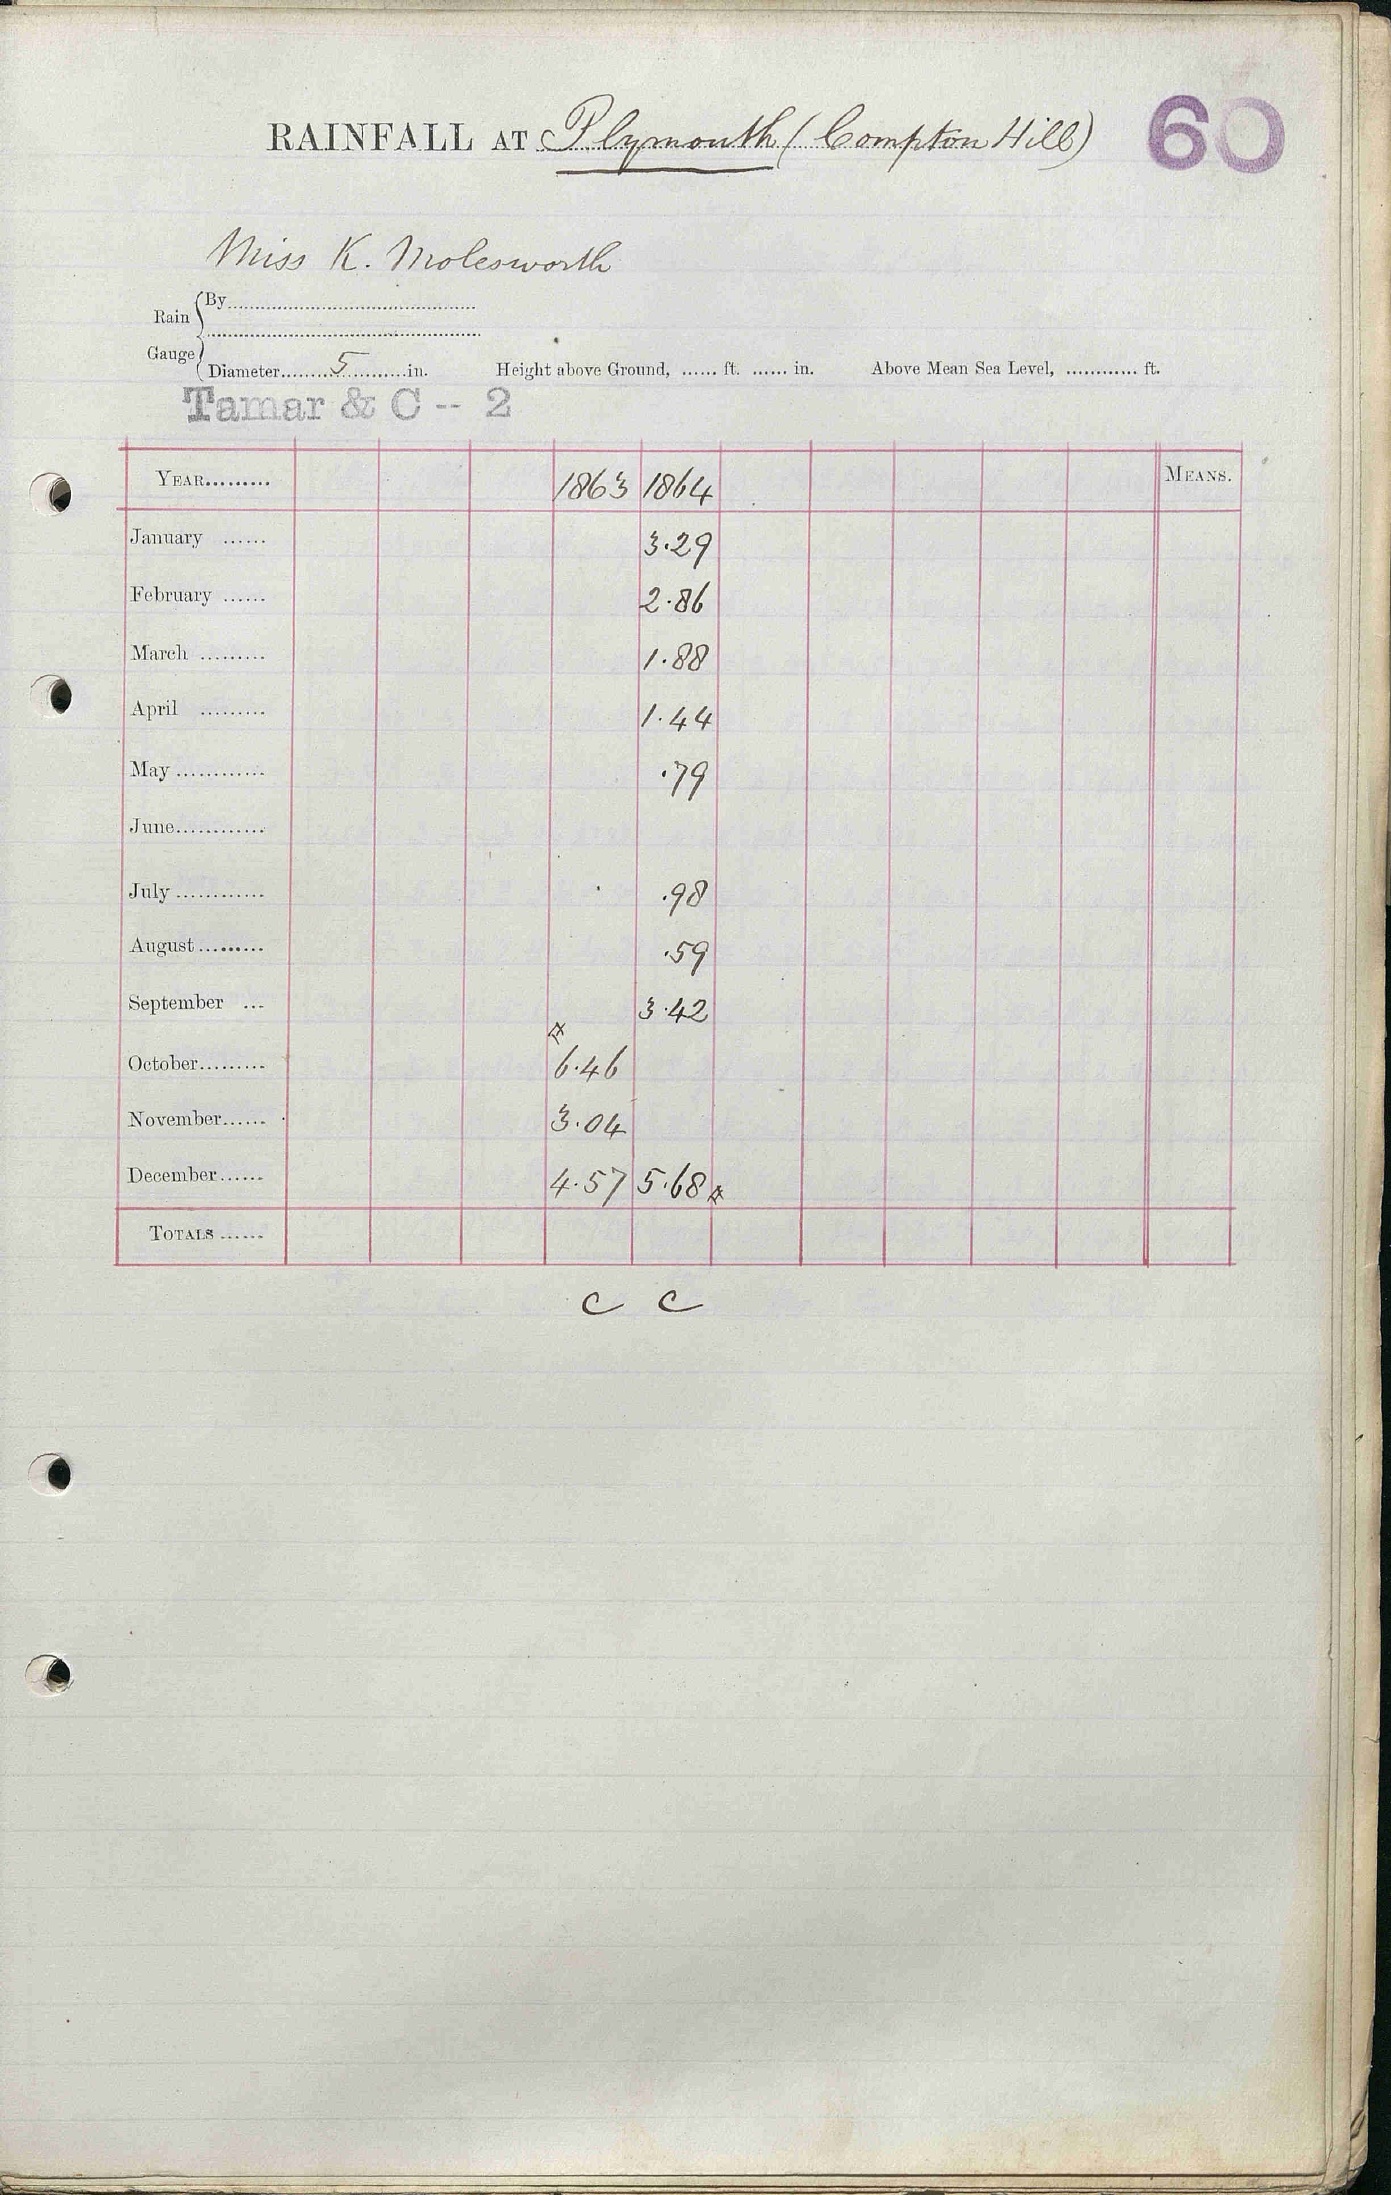 RAINFALL AT Plymouth (Compton Hill) 60
Miss K. Molesworth
Rain Gauge
By
Diameter 5 in. Height above Ground, ...... ft. ...... in. Above Mean Sea Level, ............ ft.
Tamar & C -- 2
YEAR......... 1863 1864 MEANS.
January ...... 3.29
February ...... 2.86
March ......... 1.88
April ......... 1.44
May ............ .79
June............
July ............ .98
August ......... .59
September ... 3.42
October......... 6.46
November...... 3.04
December...... 4.57 5.68
TOTALS ......
C C